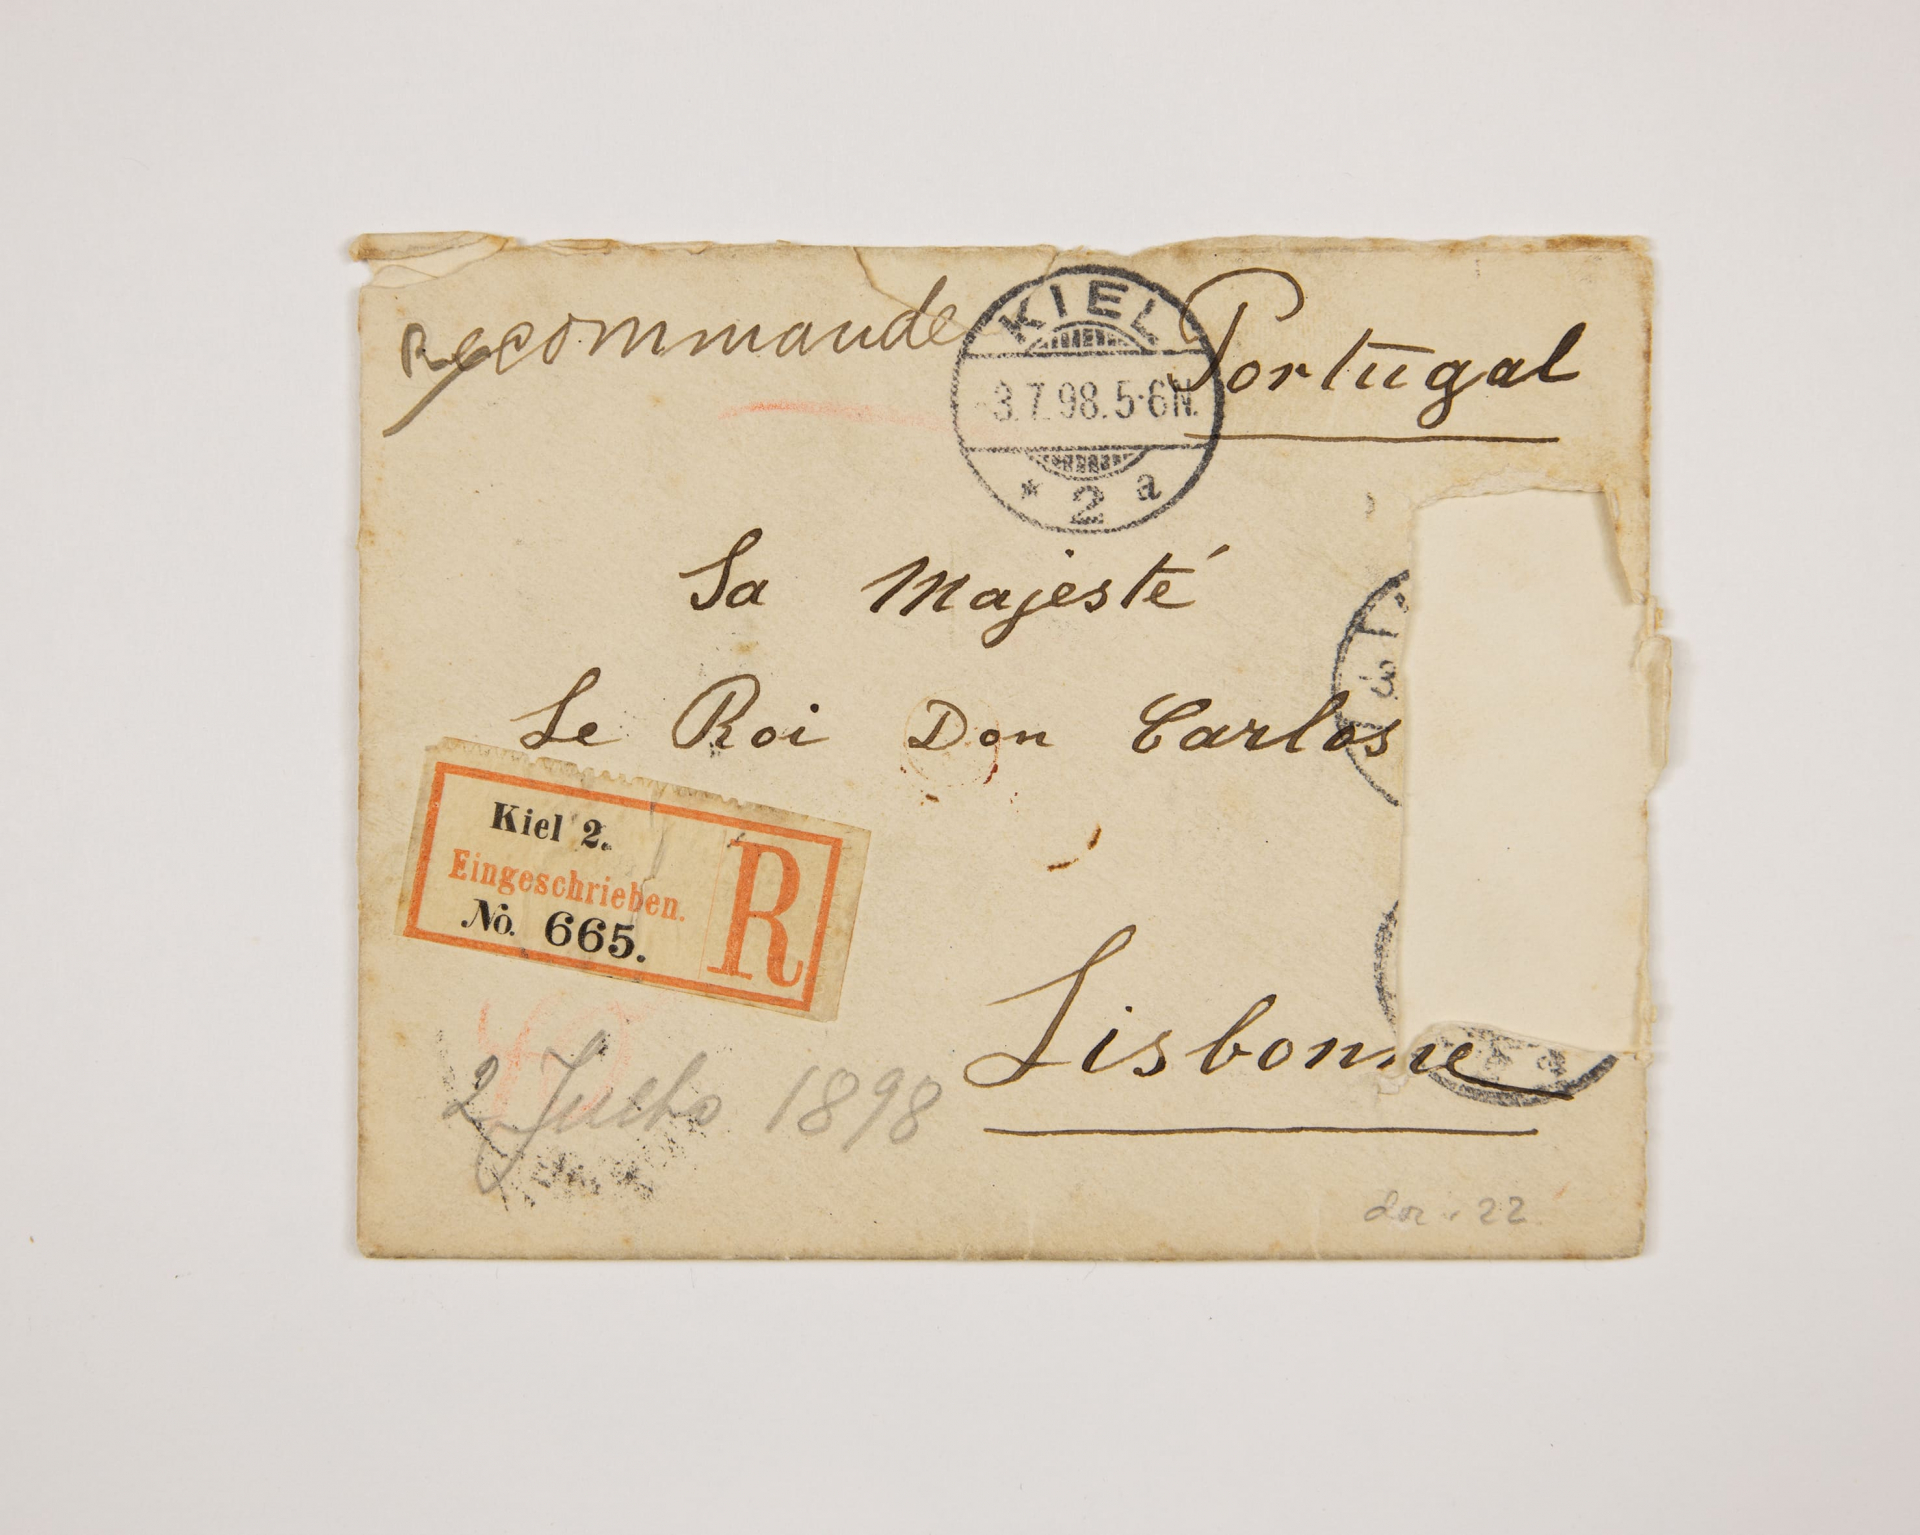 Recommande
KIEL
3.7.98.5-6N.
* 2 a
Portugal
Sa Majesté
Le Roi Don Carlos
Kiel 2.
Eingeschrieben.
No. 665.
R
Lisbonne
2 Julho 1898
22